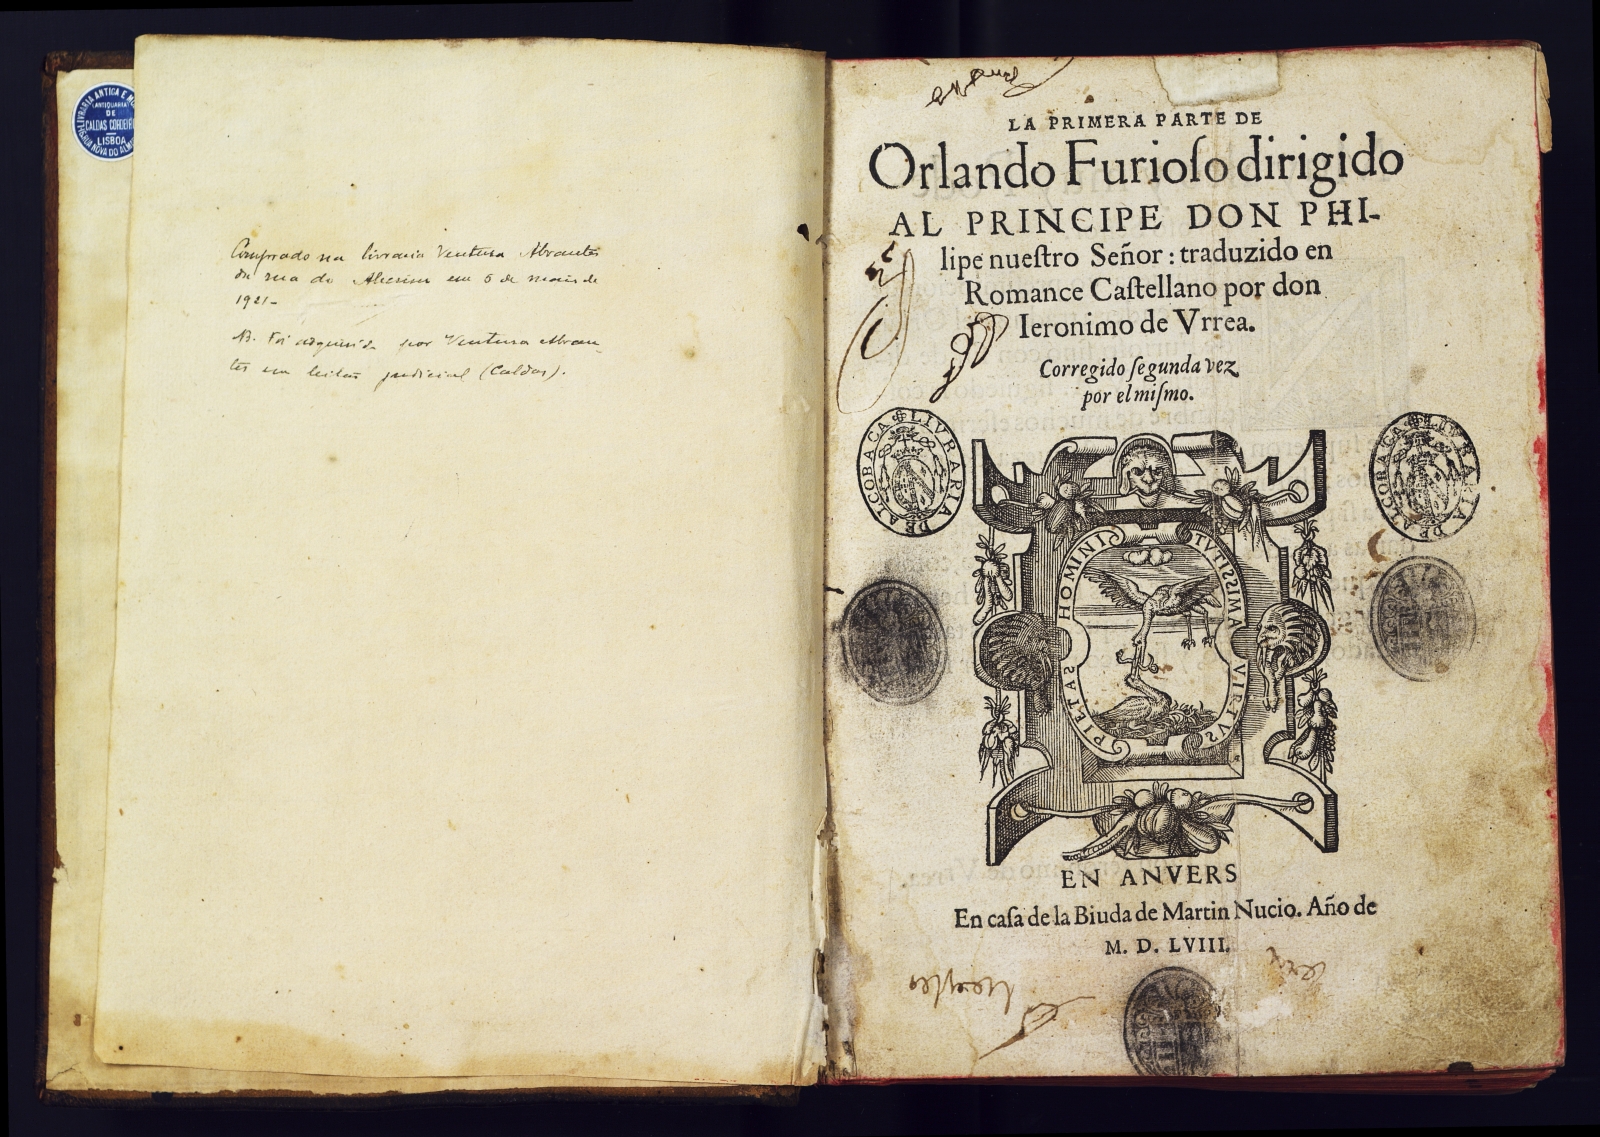 LIVRARIA ANTIGA E
(ANTIQUARIA)
DE
CALDAS CORDEIRO
LISBOA
NOVA DO
Comprado na livraria Ventura Abrantes
da rua do Alecrim em 5 de maio de
1921-
NB. Foi adquirido por Ventura Abran-
tes em leilão judicial (Caldas).
LA PRIMERA PARTE DE
Orlando Furioſo dirigido
AL PRINCIPE DON PHI-
lipe nueſtro Señor: traduzido en
Romance Caſtellano por don
Ieronimo de Vrrea.
Corregido ſegunda vez
por el miſmo.
LIVRARIA DE ALCOBACA
LIVRARIA DE ALCOBACA
PIETAS HOMINI TVTISSIMA VIRTVS
EN ANVERS
En caſa de la Biuda de Martin Nucio. Año de
M. D. LVIII.